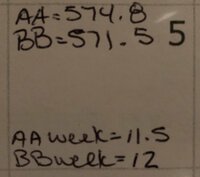 AA=574.8
BB=571.5 5
AA week=11.5
BB week=12